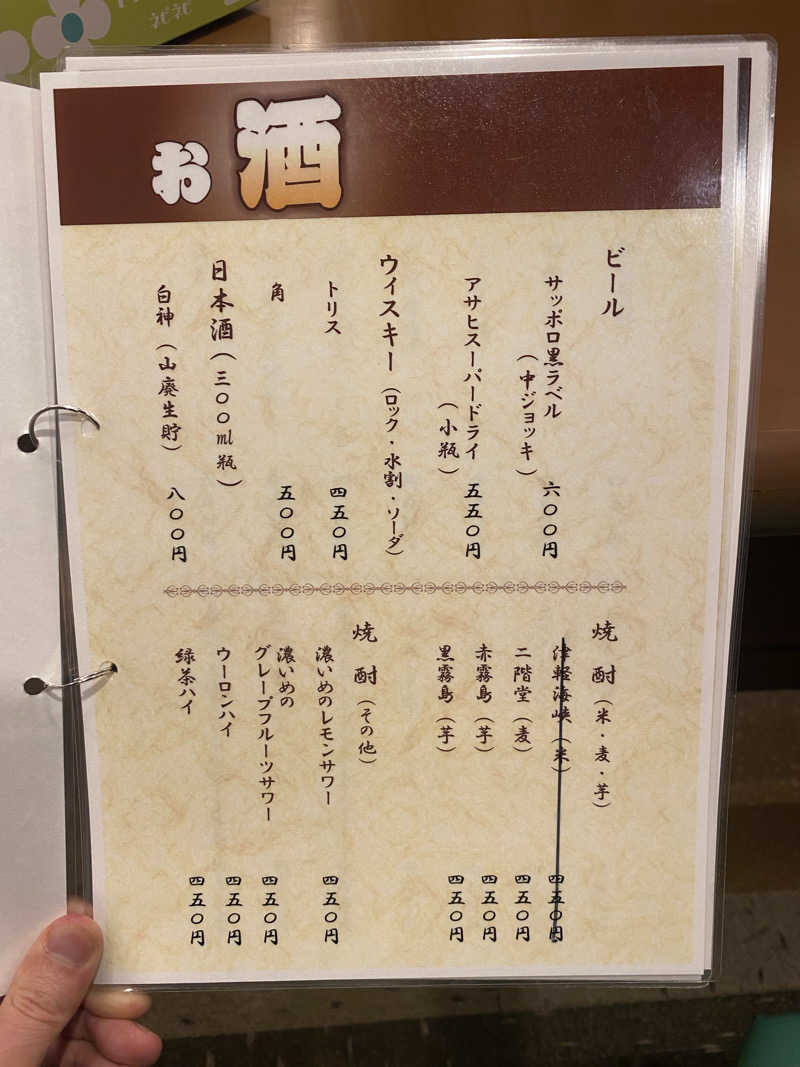 ネピネピ
お酒
ビール
サッポロ黒ラベル
(中ジョッキ) 六〇〇円
アサヒスーパードライ
(小瓶) 五五〇円
ウィスキー(ロック・水割・ソーダ)
トリス 四五〇円
角 五〇〇円
日本酒(三〇〇ml瓶)
白神(山廃生貯) 八〇〇円
焼酎(米・麦・芋)
津軽海峡(米) 四五〇円
二階堂(麦) 四五〇円
赤霧島(芋) 四五〇円
黒霧島(芋) 四五〇円
焼酎(その他)
濃いめのレモンサワー 四五〇円
濃いめの
グレープフルーツサワー 四五〇円
ウーロンハイ 四五〇円
緑茶ハイ 四五〇円